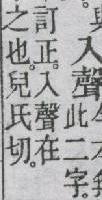 入聲此二字
訂正入聲在
之也兒氏切